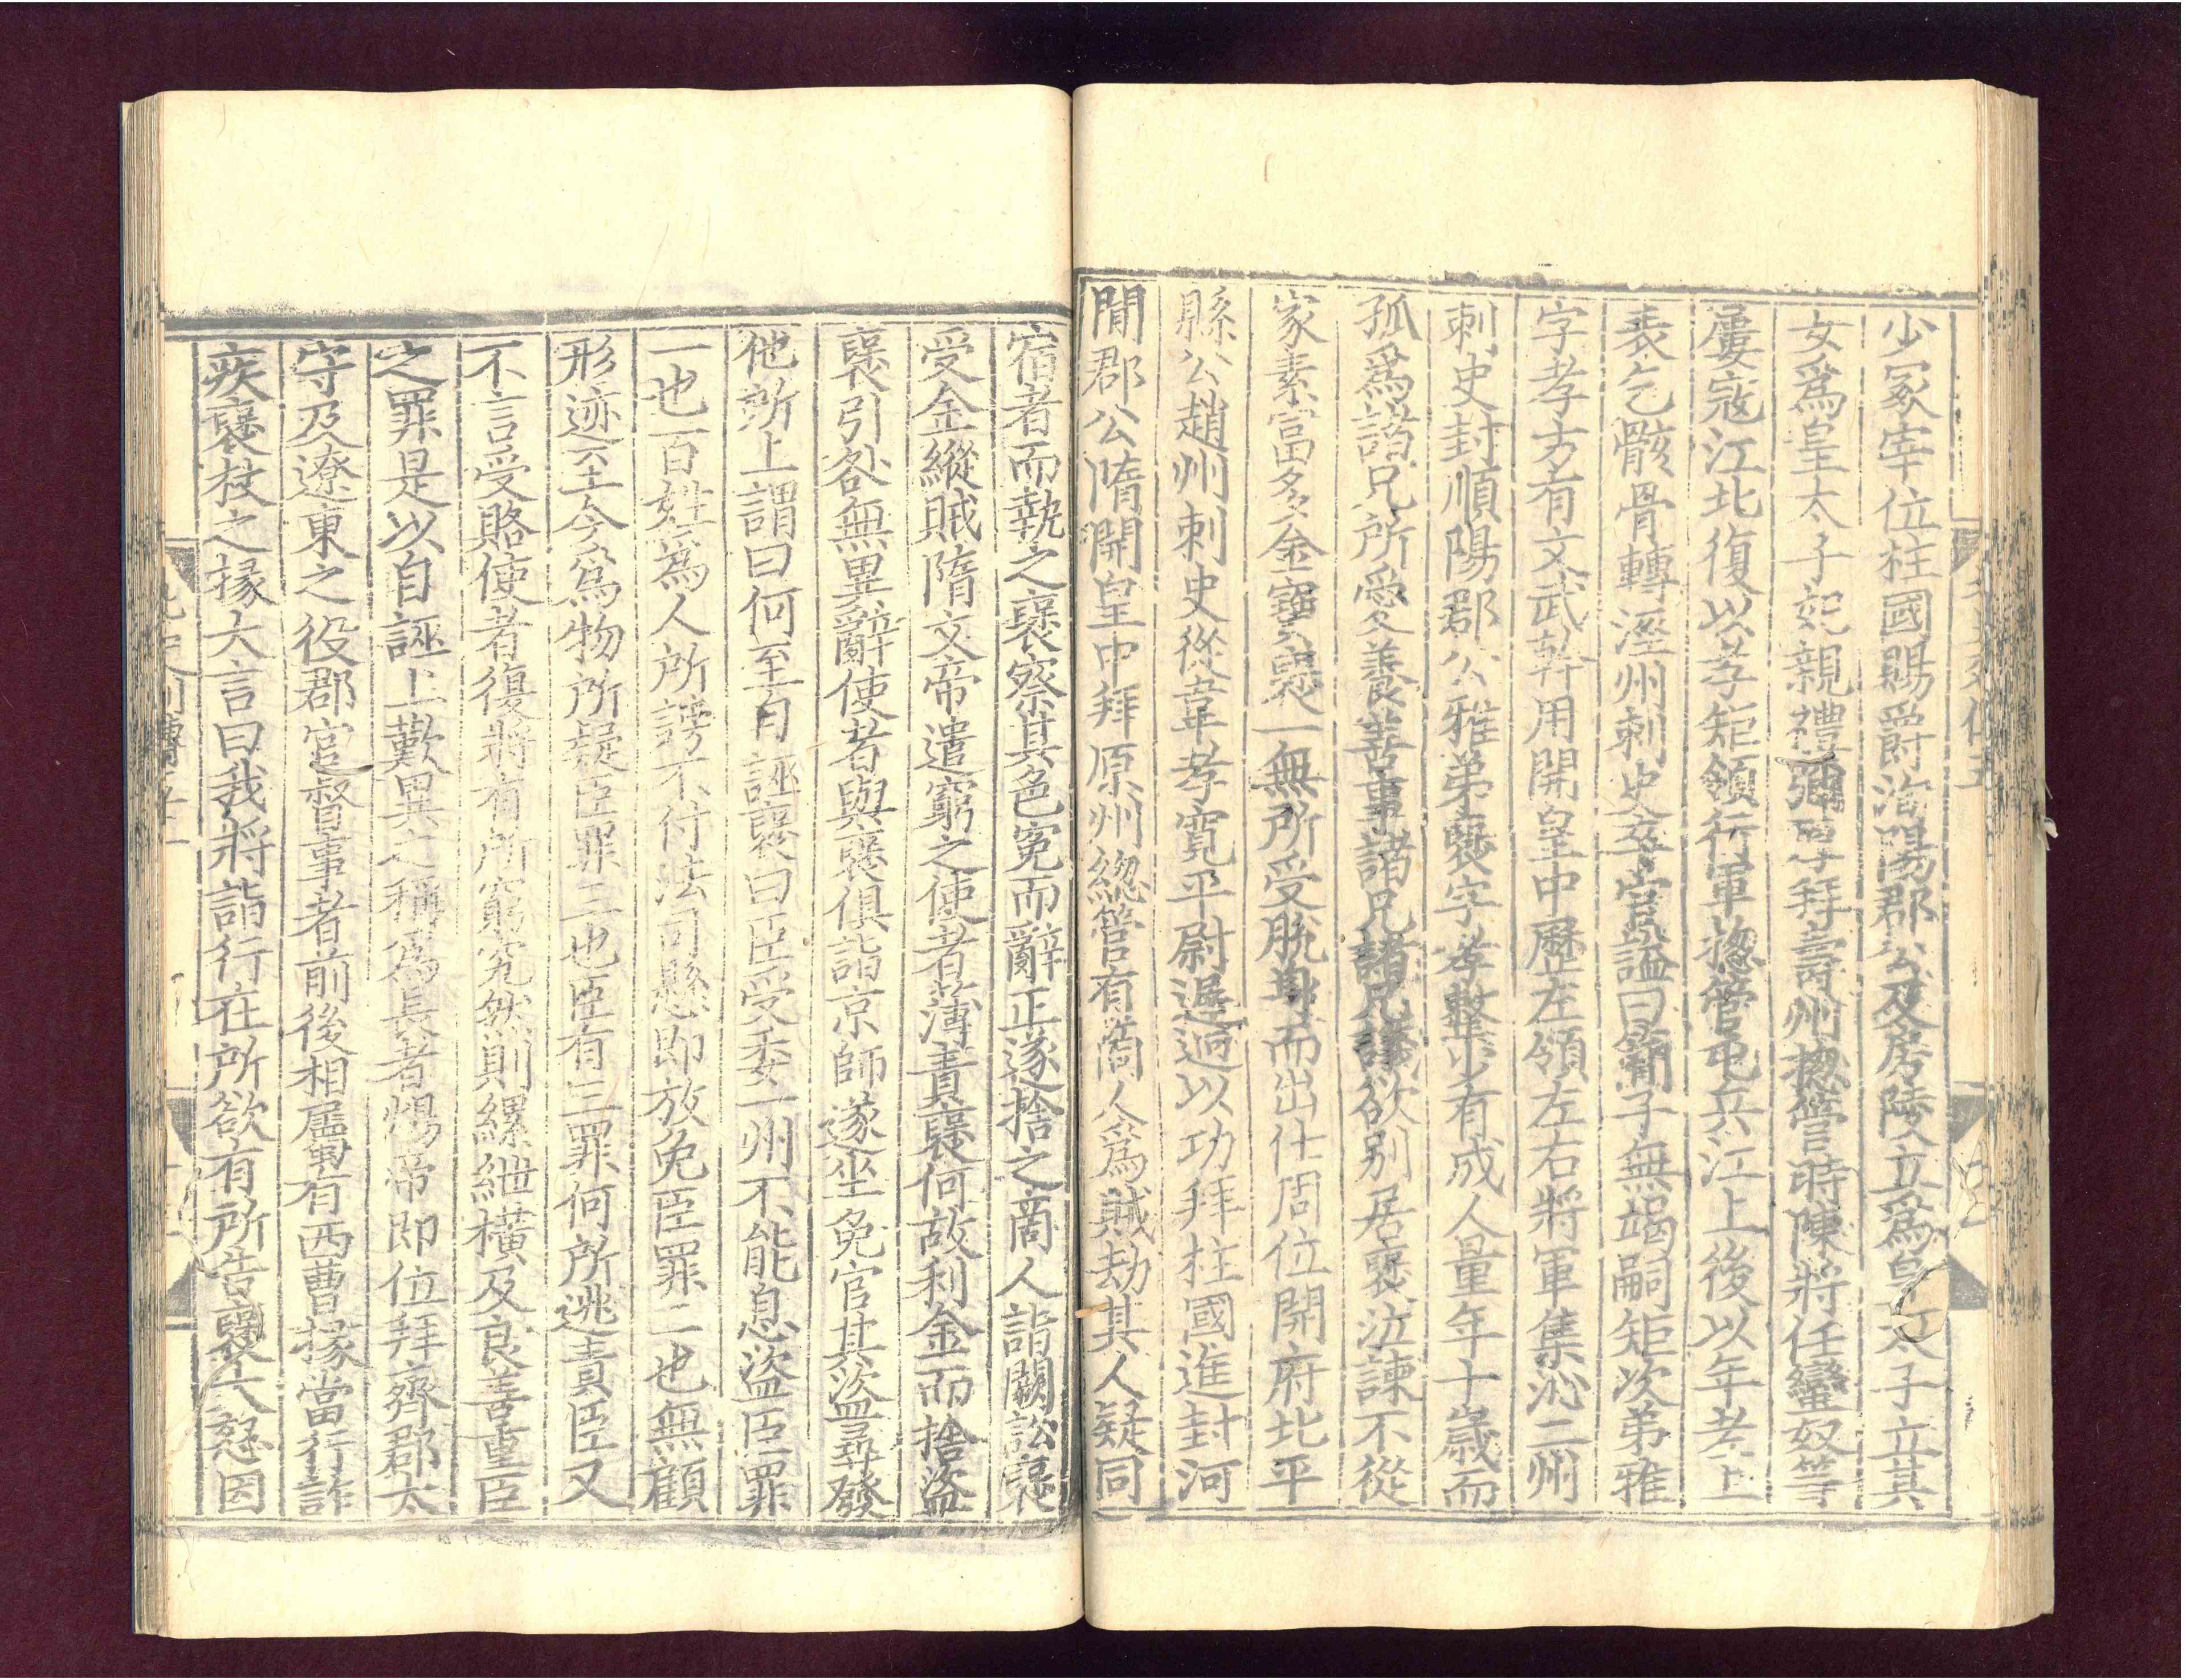 少冢宰位柱國賜爵洵陽郡公及房陵立爲皇太子立其
女爲皇太子妃親禮彌厚拜壽州揔管時陳將任蠻奴等
屢寇江北復以孝矩領行軍揔管屯兵江上後以年老上
表乞骸骨轉涇州刺史卒官謚曰簡子無竭嗣矩次弟雅
字孝方有文武幹用開皇中歷左領左右將軍集沁二州
刺史封順陽郡公雅弟襃字孝整少有成人量年十歳而
孤爲諸兄所愛養善事諸兄諸兄議欲别居襃泣諫不從
家素富多金寶襃一無所受脱身而出仕周位開府北平
縣公趙州刺史從韋孝寬平尉遲迥以功拜柱國進封河
間郡公隋開皇中拜原州總管有商人爲賊劫其人疑同
宿者而執之襃察其色冤而辭正遂捨之商人詣闕訟襃
受金縱賊隋文帝遣窮之使者薄責襃何故利金而捨盗
襃引咎無異辭使者與襃俱詣京師遂坐免官其盗尋發
他所上謂曰何至自誣襃曰臣受委一州不能息盗臣罪
一也百姓爲人所謗不付法司懸即放免臣罪二也無顧
形迹至今爲物所疑臣罪三也臣有三罪何所逃責臣又
不言受賂使者復將有所窮究然則縲紲横及良善重臣
之罪是以自誣上歎異之稱爲長者煬帝即位拜齊郡太
守及遼東之役郡官督事者前後相屬有西曹掾當行詐
疾襃杖之掾大言曰我將詣行在所欲有所告襃大怒因